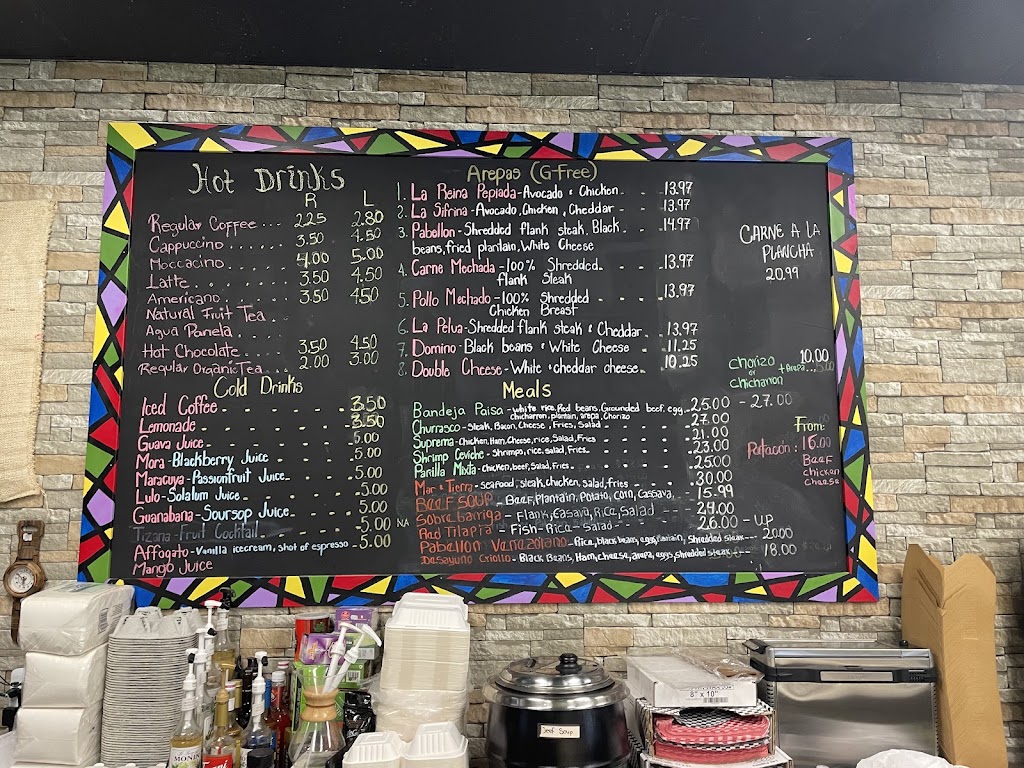 Hot Drinks
R L
Regular Coffee ... 2.25 2.80
Cappuccino ...... 3.50 4.50
Moccacino ..... 4.00 5.00
Latte . . . . . . . 3.50 4.50
Americano . . . . 3.50 4.50
Natural Fruit Tea . . .
Agua Panela . . .
Hot Chocolate .... 3.50 4.50
Regular Organic Tea ... 2.00 3.00
Cold Drinks
Iced Coffee - - - - - - 3.50
Lemonade - - - - - - - 3.50
Guava Juice - - - - - - 5.00
Mora - Blackberry Juice - - - 5.00
Maracuya - Passionfruit Juice - - 5.00
Lulo - Solalum Juice - - - - 5.00
Guanabana - Soursop Juice - - - 5.00
Tizana - Fruit Cocktail - - - - 5.00 NA
Affogato - Vanilla icecream, shot of espresso - 5.00
Mango Juice
Arepas (G-Free)
1. La Reina Pepiada - Avocado & Chicken - - 13.97
2. La Sifrina - Avocado, Chicken, Cheddar - - 13.97
3. Pabellon - Shredded flank steak, Black - - 14.97
beans, fried plantain, White Cheese
4. Carne Mechada - 100% Shredded - - - 13.97
flank Steak
5. Pollo Mechado - 100% Shredded - - - - 13.97
Chicken Breast
6. La Pelua - Shredded flank steak & Cheddar - - 13.97
7. Domino - Black beans & White Cheese - - 11.25
8. Double Cheese - White & cheddar cheese - - 10.25
Meals
Bandeja Paisa - white rice, Red beans, Grounded beef, egg - 25.00
chicharron, plantain, arepa, Chorizo
Churrasco - Steak, Bacon, Cheese, Fries, Salad - - - - 27.00 - 27.00
Suprema - Chicken, Ham, Cheese, rice, Salad, Fries - - - - 21.00
Shrimp Ceviche - Shrimps, rice, Salad, Fries - - - - 23.00
Parilla Mixta - Chicken, beef, Salad, Fries - - - - 25.00
Mar & Tierra - seafood, steak, chicken, salad, fries - - - - 30.00
Beef Soup - Beef, Plantain, Potato, Corn, Cassava, - 15.99
Sobre barriga - Flank, Casava, Rice, Salad - 24.00
Red Tilapia - Fish - Rice - Salad - 26.00 - up
Pabellon Venezolano - Rice, black beans, egg, Plantain, Shredded steak --- 20.00
Desayuno Criollo - Black Beans, Ham, cheese, arepa, eggs, shredded steak --- 18.00
CARNE A LA
PLANCHA
20.99
Chorizo 10.00
or + Arepa ... 5.00
Chicharron
From:
Patacón: 16.00
Beef
Chicken
Cheese
Beef Soup
8" x 10"
MONIN